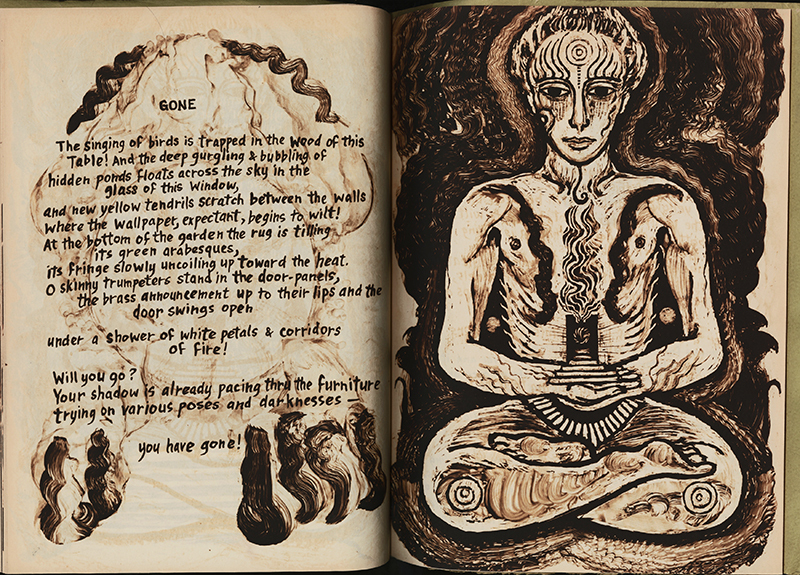 GONE
The singing of birds is trapped in the wood of this
Table! And the deep gurgling & bubbling of
hidden ponds floats across the sky in the
glass of this window,
and new yellow tendrils scratch between the walls
where the wallpaper, expectant, begins to wilt!
At the bottom of the garden the rug is tilling
its green arabesques,
its fringe slowly uncoiling up toward the heat.
O skinny trumpeters stand in the door-panels,
the brass announcement up to their lips and the
door swings open
under a shower of white petals & corridors
of fire!
Will you go?
Your shadow is already pacing thru the furniture
trying on various poses and darknesses —
you have gone!